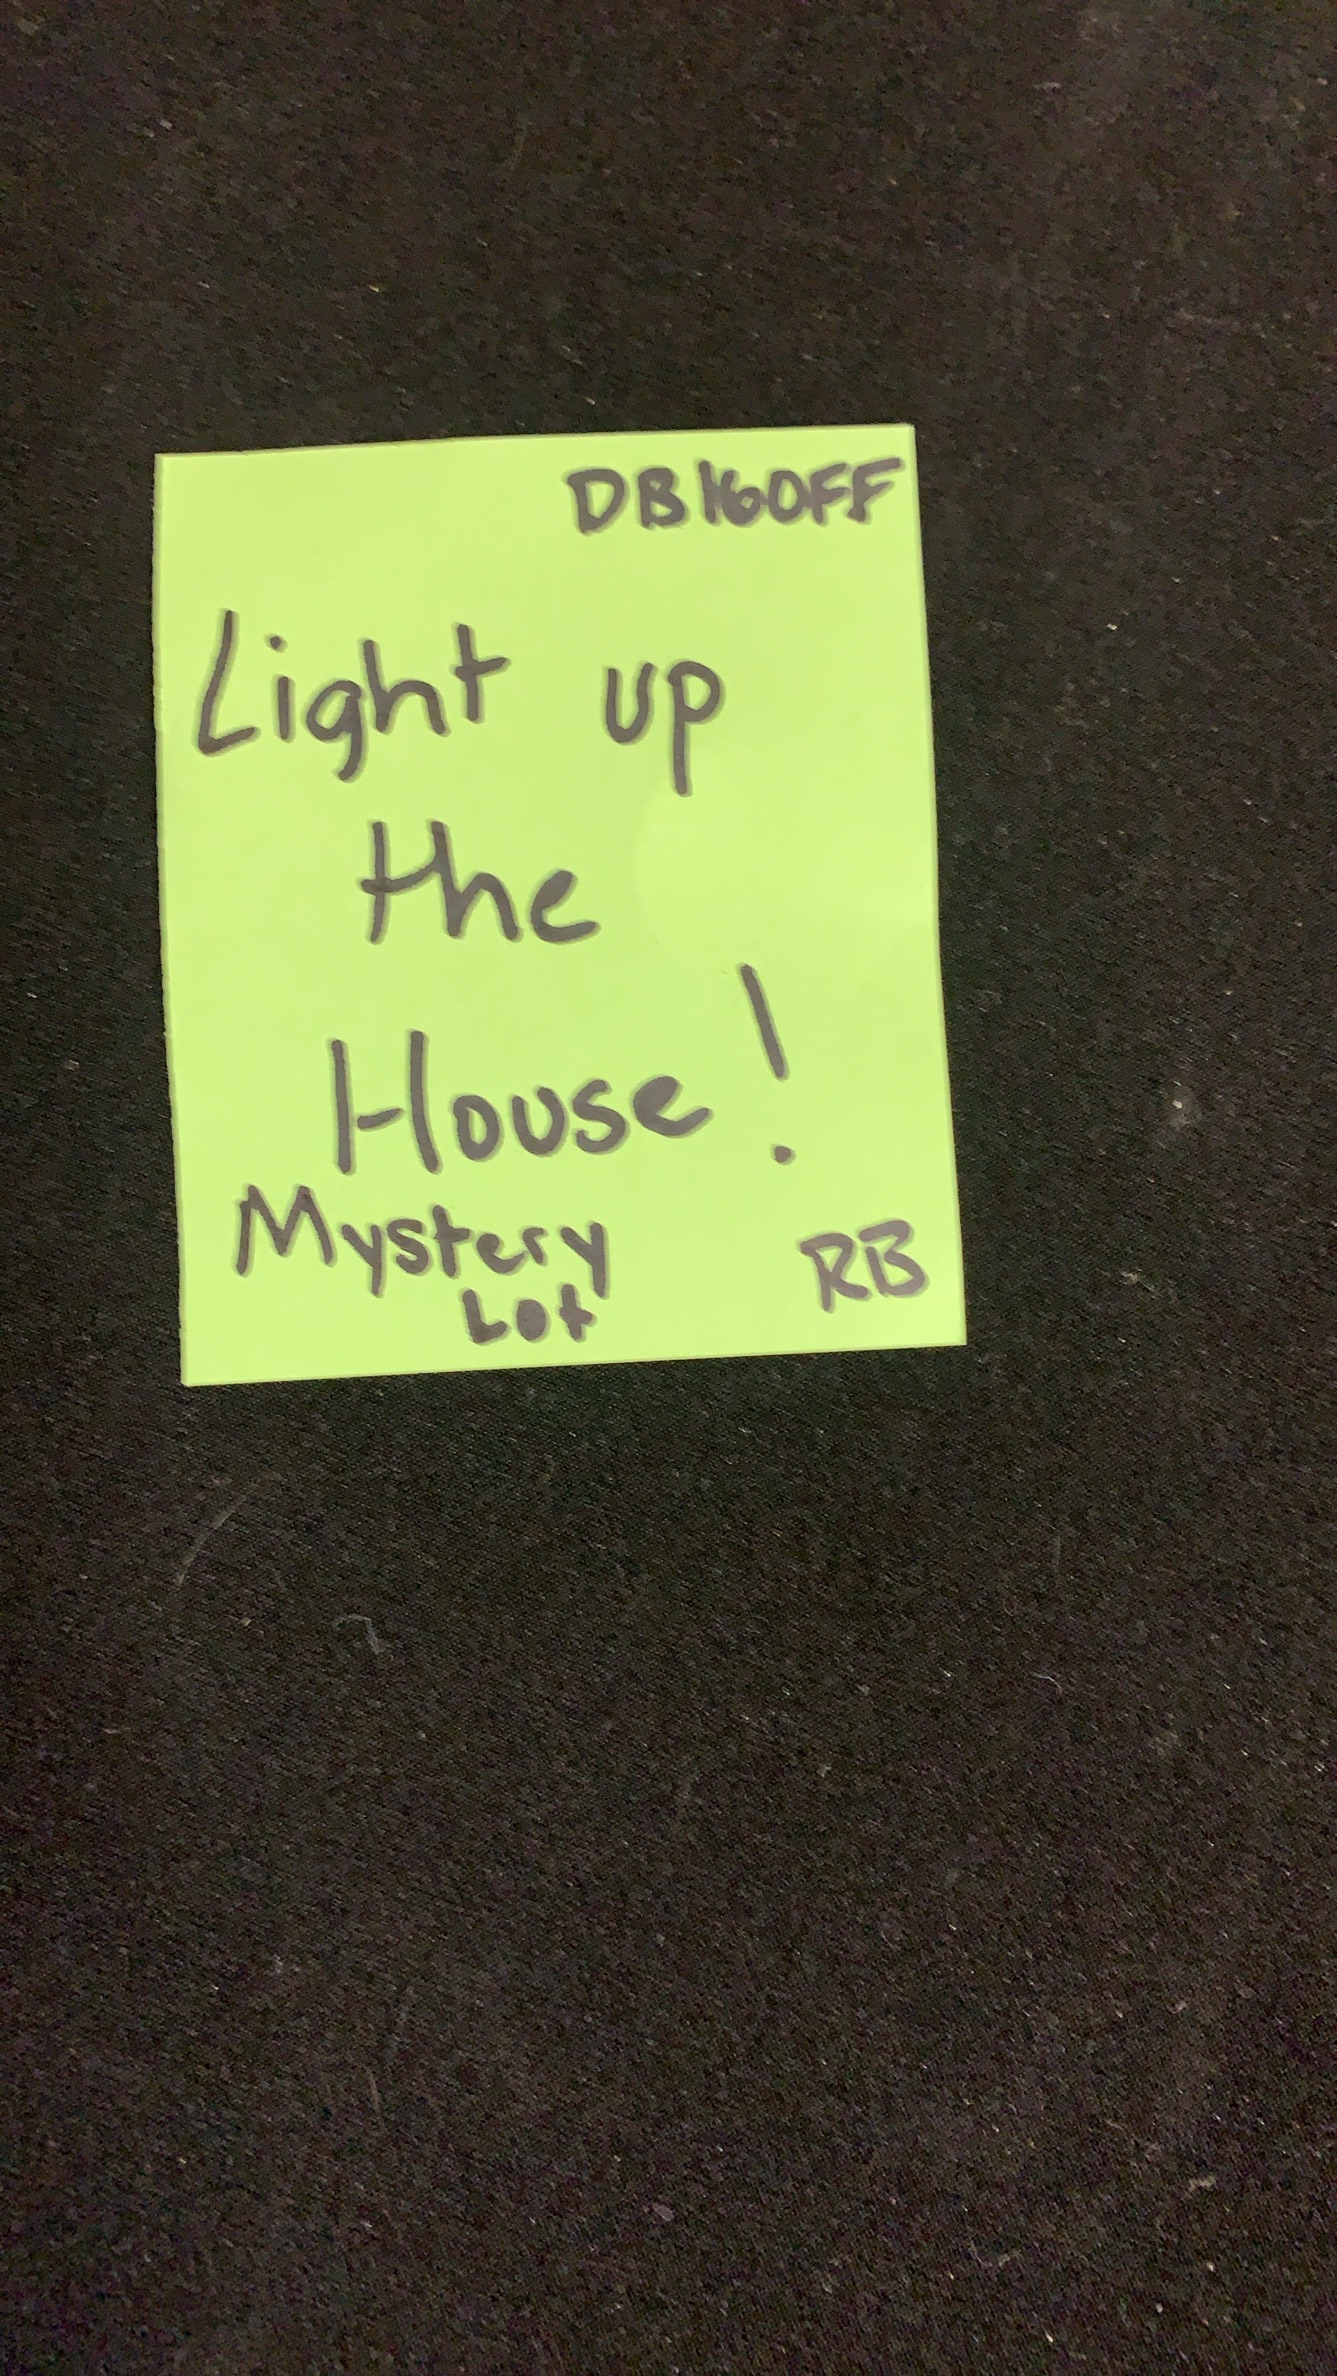 DB16OFF
Light up
the
House!
Mystery
Lot
RB